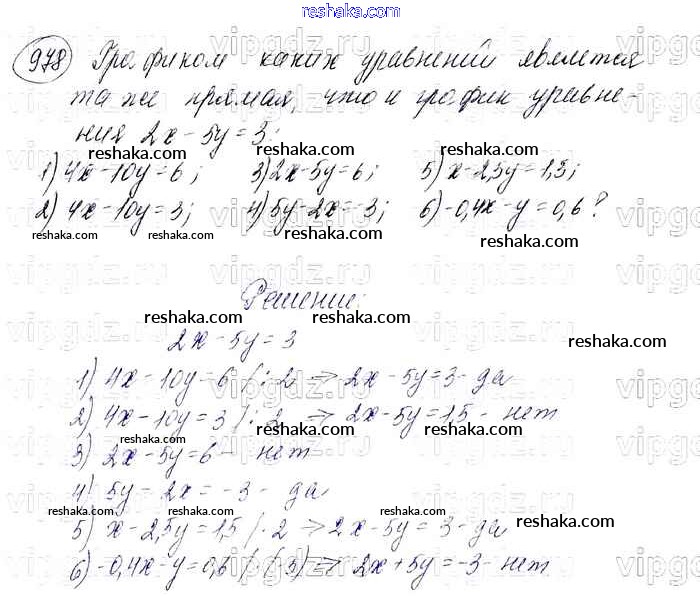 reshaka.com
978 Графиком каких уравнений является
та же прямая, что и график уравне-
ния 2x - 5y = 3:
reshaka.com reshaka.com reshaka.com
1) 4x - 10y = 6; 3) 2x - 5y = 6; 5) x - 2,5y = 1,5;
2) 4x - 10y = 3; 4) 5y - 2x = -3; 6) -0,4x - y = 0,6?
reshaka.com reshaka.com reshaka.com
Решение:
reshaka.com reshaka.com
2x - 5y = 3
reshaka.com
1) 4x - 10y = 6 /:2 => 2x - 5y = 3 - да
reshaka.com
2) 4x - 10y = 3 /:2 => 2x - 5y = 1,5 - нет
reshaka.com reshaka.com
3) 2x - 5y = 6 - нет
4) 5y - 2x = -3 - да
reshaka.com
5) x - 2,5y = 1,5 /·2 => 2x - 5y = 3 - да
reshaka.com reshaka.com
6) -0,4x - y = 0,6 /·(-5) => 2x + 5y = -3 - нет
vipgdz.ru